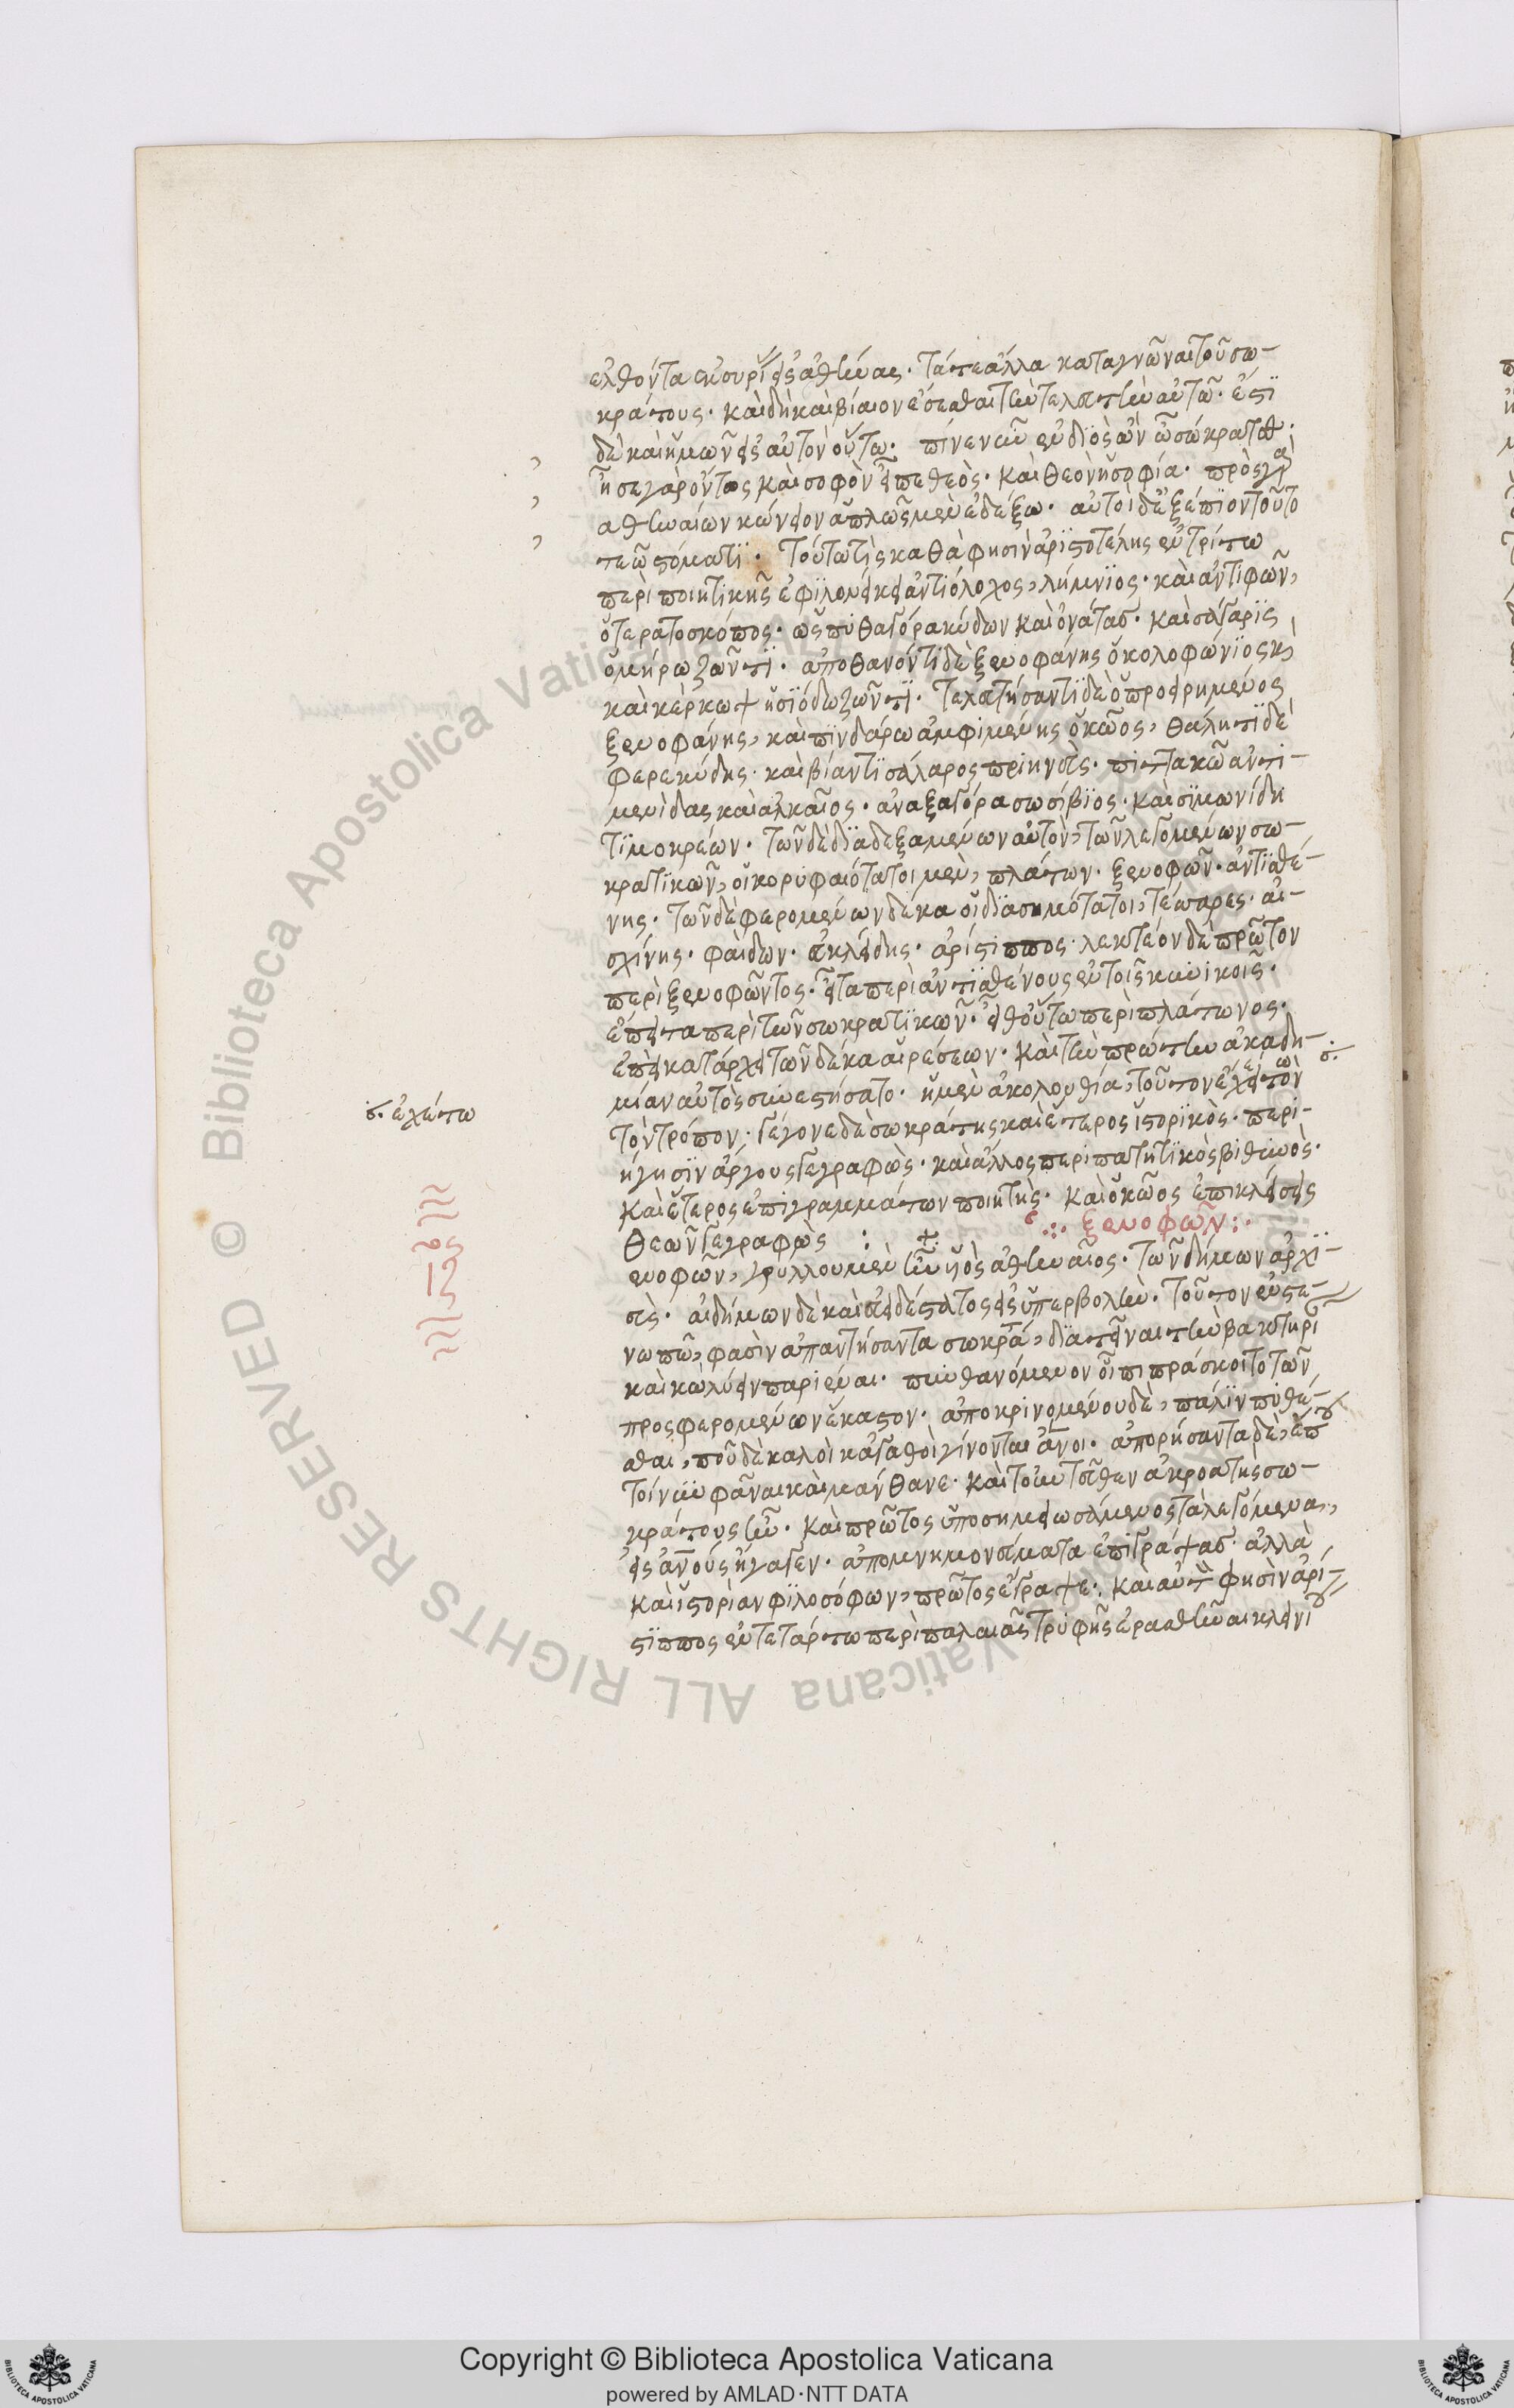 ἐλθόντα ἐκ συρίας εἰς ἀθήνας· τά τε ἄλλα καταγνῶναι τοῦ σω-
κράτους· καὶ δὴ καὶ βίαιον ἔσεσθαι τὴν τελευτὴν αὐτῶ· ἔστι
δὲ καὶ ἡμῶν εἰς αὐτὸν οὕτω· πῖνε νῦν ἐν διὸς ὢν ὦ σώκρατες·
ἦ σε γὰρ ὄντως καὶ σοφὸν εἶπε θεὸς· καὶ θεὸν ἡ σοφία· πρὸς γὰρ
ἀθηναίων κώνειον ἁπλῶς μὲν ἐδέξω· αὐτοὶ δ' ἐξέπιον τοῦτο
τεῶ στόματι· τούτω τὶς καθὰ φησὶν ἀριστοτέλης ἐν τρίτω
περὶ ποιητικῆς ἐφιλονείκει ἀντιόλοχος λήμνιος· καὶ ἀντιφῶν
ὁ τερατοσκόπος· ὡς πυθαγόρα κύδων καὶ ὀνάτας· καὶ σάγαρις
ὁμήρω ζῶντι· ἀποθανόντι δὲ ξενοφάνης ὁ κολοφώνιος κ,
καὶ κέρκωψ ἡσιόδω ζῶντι· τελευτήσαντι δὲ ὁ προειρημένος
ξενοφάνης, καὶ πινδάρω ἀμφιμένης ὁ κῶος, θάλητι δὲ
φερεκύδης· καὶ βίαντι σάλαρος πριηνεὺς· πιττακῶ ἀντι-
μενίδας καὶ ἀλκαῖος· ἀναξαγόρα σωσίβιος· καὶ σιμωνίδη
τιμοκρέων· τῶν δὲ διαδεξαμένων αὐτὸν, τῶν λεγομένων σω-
κρατικῶν, οἱ κορυφαιότατοι μὲν, πλάτων· ξενοφῶν· ἀντισθέ-
νης· τῶν δὲ φερομένων δέκα οἱ διασημότατοι, τέσσαρες· αἰ-
σχίνης· φαίδων· εὐκλείδης· ἀρίστιππος· λεκτέον δὲ πρῶτον
περὶ ξενοφῶντος· εἶτα περὶ ἀντισθένους ἐν τοῖς κυνικοῖς·
ἔπειτα περὶ τῶν σωκρατικῶν· εἶθ' οὕτω περὶ πλάτωνος·
ἐπεὶ κατάρχει τῶν δέκα αἱρέσεων· καὶ τὴν πρώτην ἀκαδη-
μίαν αὐτὸς συνεστήσατο· ἡ μὲν ἀκολουθία τοῦτον ἔχει τὸν
ἐχέτω
τὸν τρόπον· γέγονε δὲ σωκράτης καὶ ἕτερος ἱστορικὸς· περι-
ήγησιν ἄργους γεγραφὼς· καὶ ἄλλος περιπατητικὸς βιθυνὸς·
καὶ ἕτερος ἐπιγραμμάτων ποιητὴς· καὶ ὁ κῶος ἐπικλήσεις
θεῶν γεγραφὼς :
ξενοφῶν
ενοφῶν, γρύλλου μὲν ἦν υἱὸς ἀθηναῖος· τῶν δήμων ἀρχι-
εὺς· αἰδήμων δὲ καὶ εὐειδέστατος εἰς ὑπερβολὴν· τοῦτον ἐν στε-
νωπῶ φασὶν ἀπαντήσαντα σωκρά, διατεῖναι τὴν βακτηρί
καὶ κωλύειν παριέναι· πυνθανόμενον οὗ πιπράσκοιτο τῶν
προσφερομένων ἕκαστον· ἀποκρινομένου δὲ, πάλιν πυθέ-
σθαι, ποῦ δὲ καλοὶ κἀγαθοὶ γίνονται ἄνοι· ἀπορήσαντα δὲ, ἕπου
τοίνυν φᾶναι καὶ μάνθανε· καὶ τοὐντεῦθεν ἀκροατὴς σω-
κράτους ἦν· καὶ πρῶτος ὑποσημειωσάμενος τὰ λεγόμενα,
εἰς ἀνους ἤγαγεν· ἀπομνημονεύματα ἐπιγράψας· ἀλλὰ
καὶ ἱστορίαν φιλοσόφων, πρῶτος ἔγραψε· καὶ αὐτὸν φησὶν ἀρί-
στιππος ἐν τετάρτω περὶ παλαιᾶς τρυφῆς ἐρασθῆναι κλεινίου
Copyright © Biblioteca Apostolica Vaticana
powered by AMLAD·NTT DATA